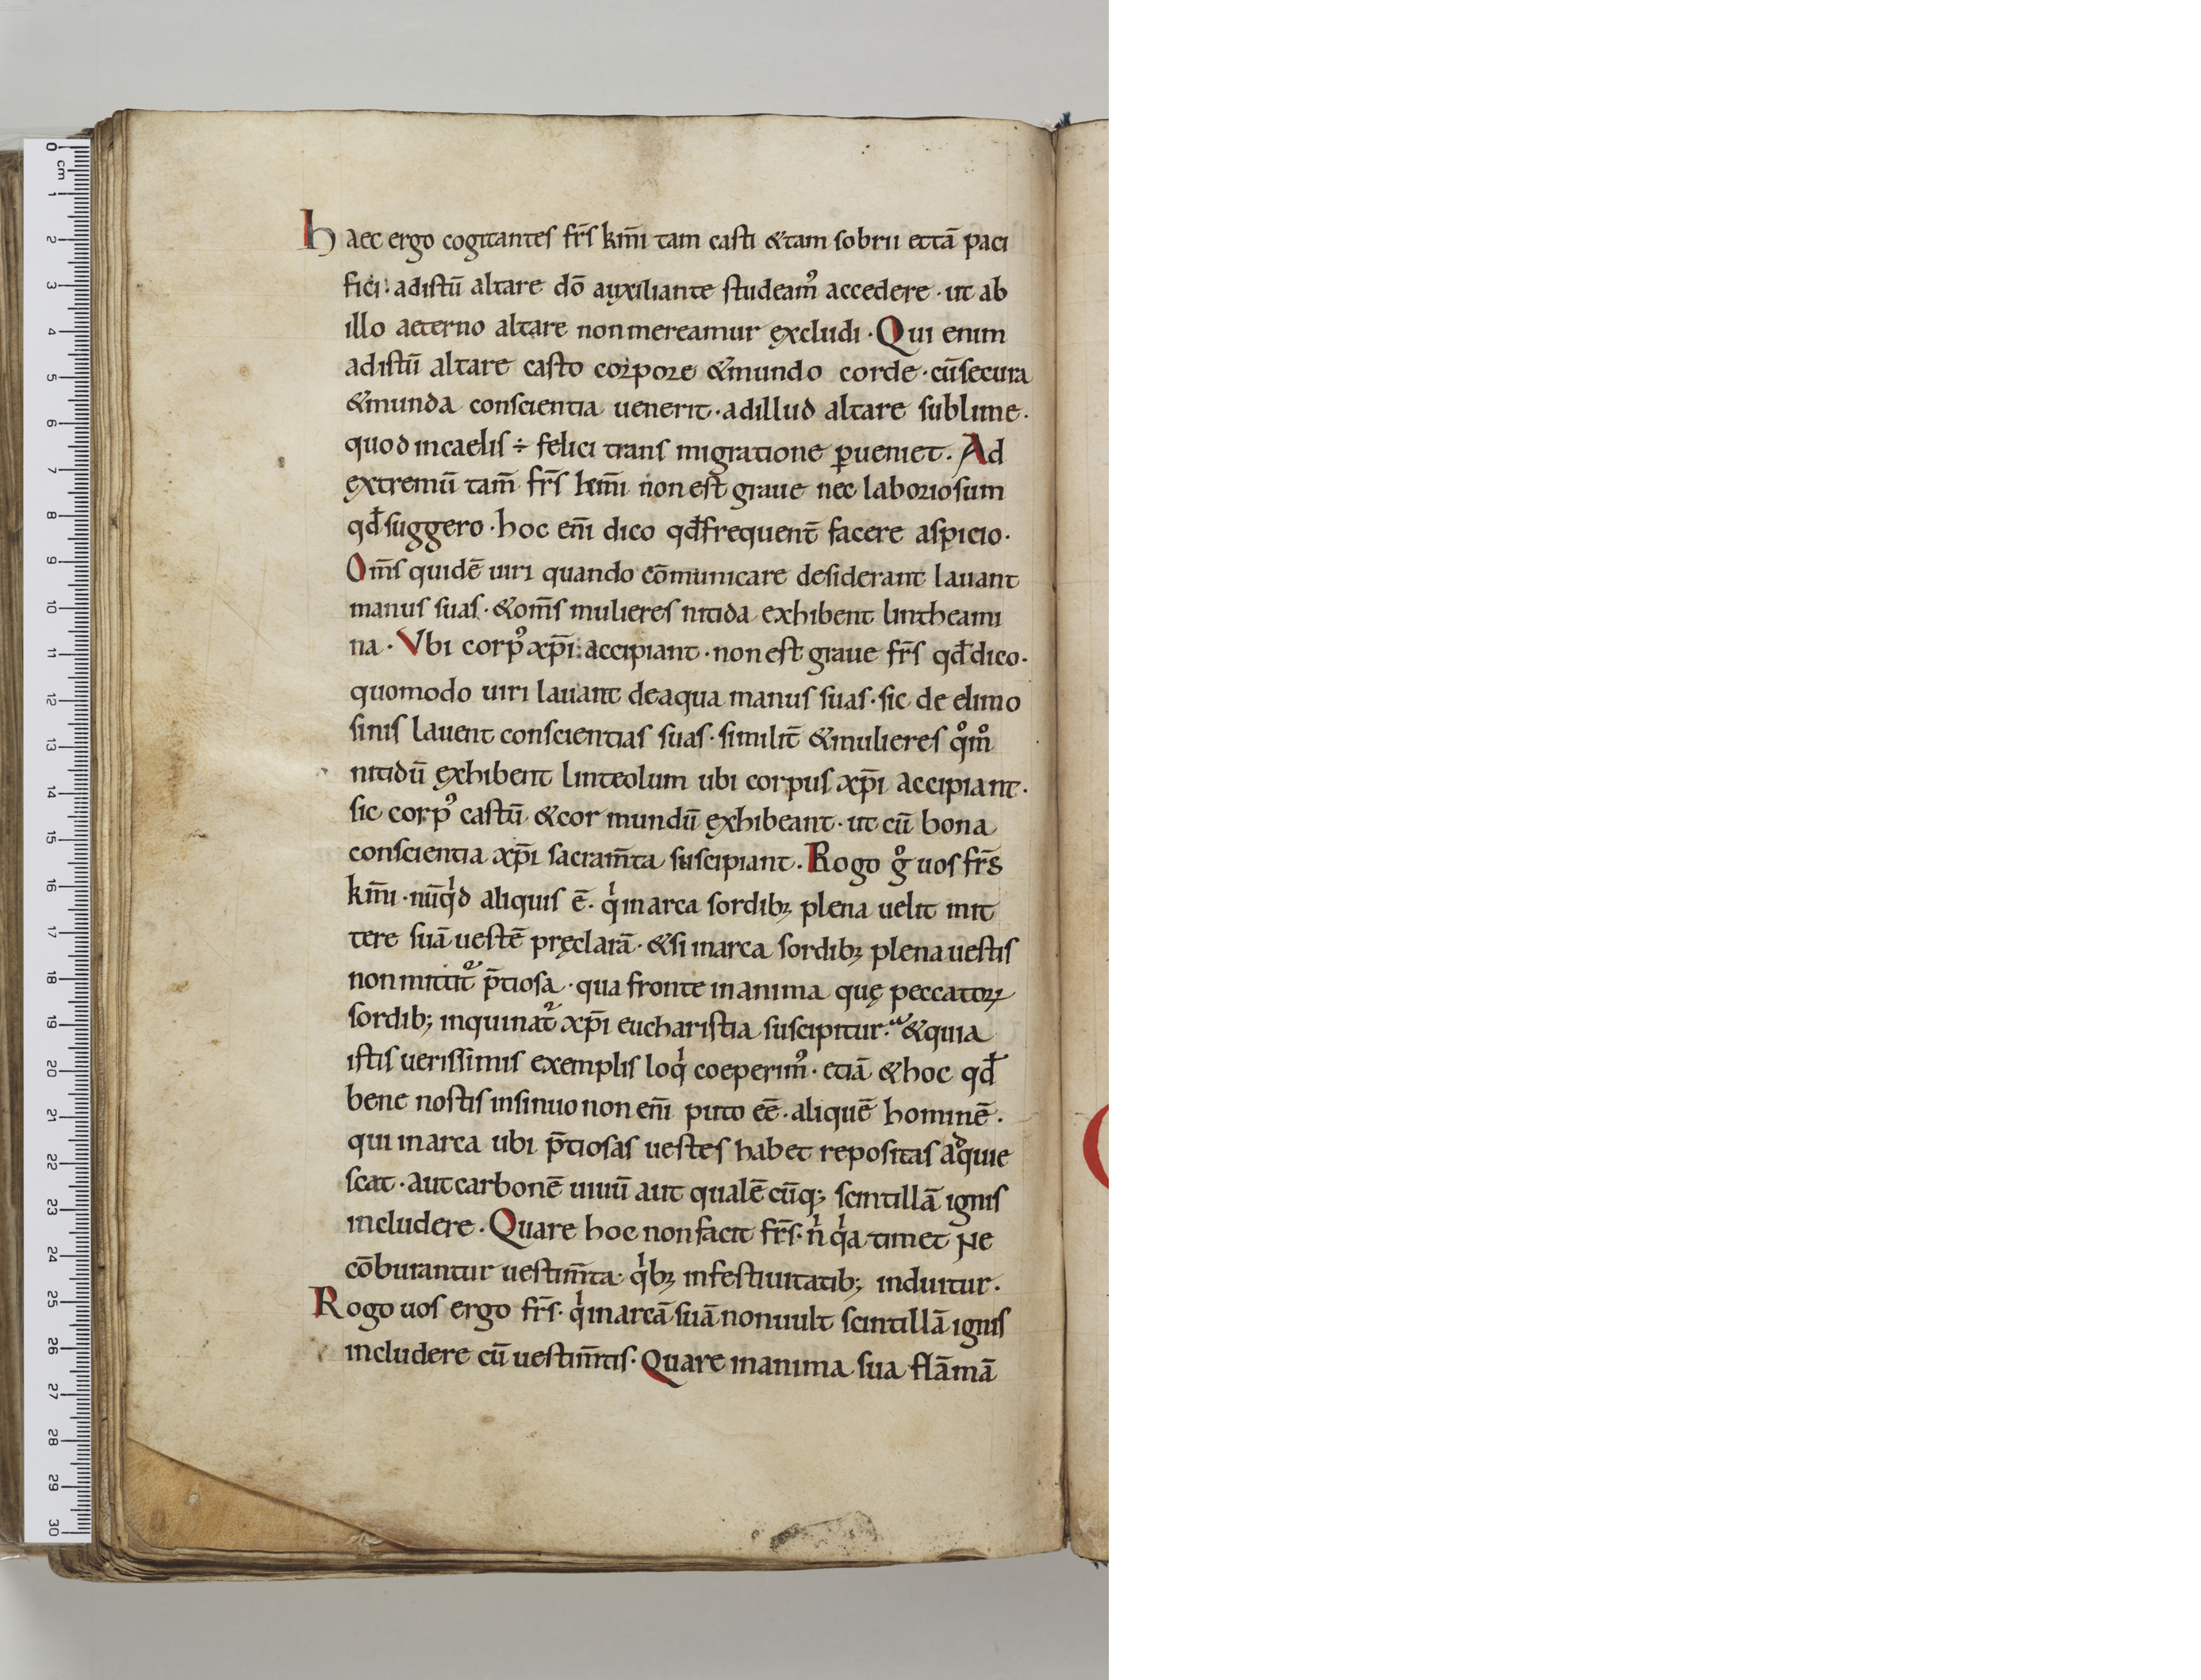 haec ergo cogitantes fr̄s km̄i tam casti &tam sobrii ettā paci
fici: adistū altare dō auxiliante studeamꝰ accedere · ut ab
illo aeterno altare nonmereamur excludi · Qui enim
adistū altare casto corpore &mundo corde · cūsecura
&munda conscientia uenerit · adillud altare sublime ·
quod incaelis ÷ felici trans migratione ꝑueniet · Ad
extremū tam̄ fr̄s km̄i non est graue nec laboriosum
qđ suggero · hoc em̄ dico qđfrequent̄ facere aspicio ·
Om̄s quidē uiri quando cōmunicare desiderant lauant
manus suas · &om̄s mulieres nitida exhibent lintheami
na · Vbi corpꝰ xp̄i: accipiant · non est graue fr̄s qđdico ·
quomodo uiri lauant deaqua manus suas · sic de elimo
sinis lauent conscientias suas · similit̄ &mulieres qͦmͦ
nitidū exhibent linteolum ubi corpus xp̄i accipiant ·
sic corpꝰ castū &cor mundū exhibeant · ut cū bona
conscientia xp̄i sacram̄ta suscipiant · Rogo gͦ uos fr̄s
km̄i · nūqͥd aliquis ē · qͥ inarca sordibꝫ plena uelit mit
tere suā uestē pręclarā · &si inarca sordibꝫ plena uestis
non mittit᷑ p̄tiosa · qua fronte inanima quę peccatoꝝ
sordib; inquinat᷑ xp̄i eucharistia suscipitur · &quia
istis uerissimis exemplis loqͥ coeperimꝰ · etiā &hoc qđ
bene nostis insinuo non em̄ puto eē · aliquē hominē ·
qui inarca ubi p̄tiosas uestes habet repositas adquie
scat · aut carbonē uiuū aut qualē cūq; scintillā ignis
includere · Quare hoc non facit fr̄s · nͥ qͥa timet Ne
cōburantur uestim̄ta · qͥbꝫ infestiuitatib; induitur ·
Rogo uos ergo fr̄s · qͥ inarcā suā nonuult scintillā ignis
includere cū uestim̄tis · Quare inanima sua flāmā